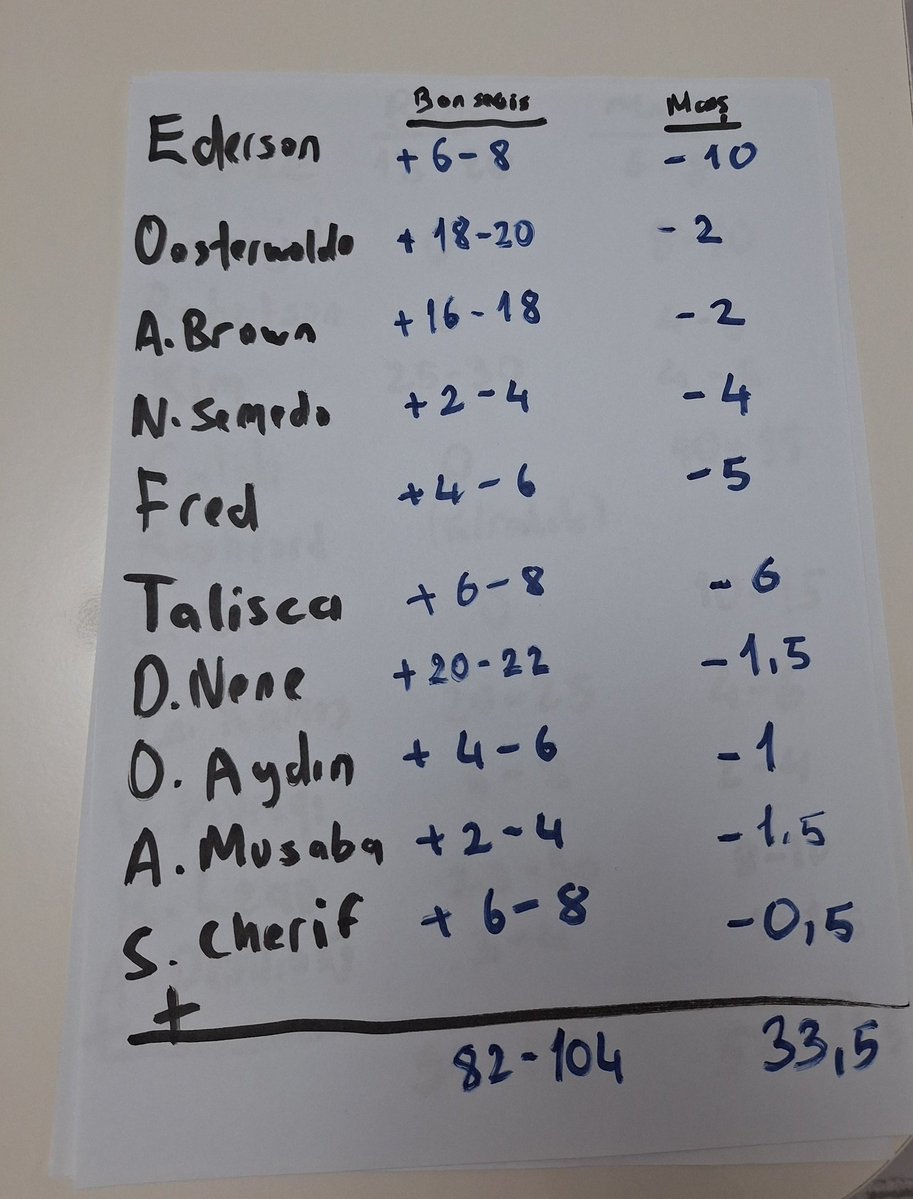 Bonservis Maaş
Ederson +6-8 -10
Oosterwolde +18-20 -2
A. Brown +16-18 -2
N. Semedo +2-4 -4
Fred +4-6 -5
Talisca +6-8 -6
D. Nene +20-22 -1,5
O. Aydın +4-6 -1
A. Musaba +2-4 -1,5
S. Cherif +6-8 -0,5
+
82-104 33,5